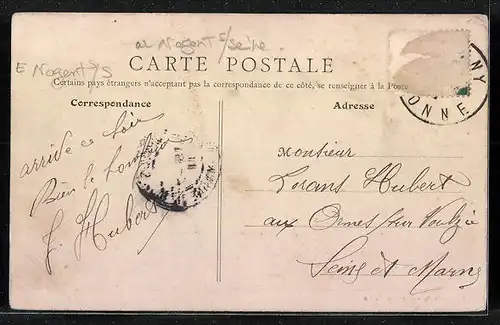 al Nogent s/seine.
E Nogent s/S
CARTE POSTALE
Certains pays étrangers n'acceptant pas la correspondance de ce côté, se renseigner à la Poste
Correspondance
Adresse
NY
ONNE
arrive ce soir
Bien le bonjour
J. Hubert
Monsieur
Lorans Hubert
aux Ormes sur Voulzie
Seine et Marne